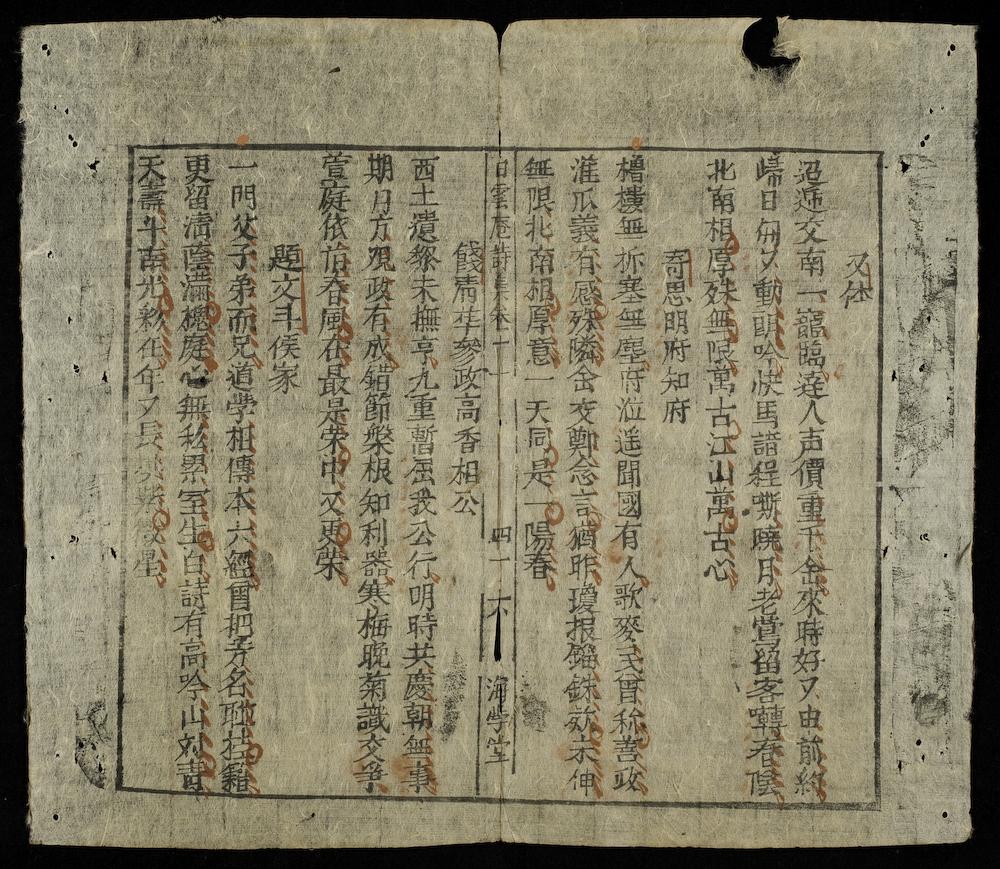 又体
迢逓交南一寵臨逹人声價重千金來時好又由前約
歸日毎又動頭吟快馬諳程嘶曉月老鶯留客囀春陰
北南相厚殊無限萬古江山萬古心
寄思明府知府
櫓樓無柝塞無塵府涖遥聞國有人歌麥民曾称善政
淮瓜義有感殊隣金交鄭念言猶昨瓊报錙銖效未伸
無限北南相厚意一天同是一陽春
白雲庵詩集卷二 四十一 海学堂
餞清華參政高香相公
西土遺黎未撫亨九重暫屈我公行明時共慶朝無事
期日方观政有成錯節槃根知利器寒梅晚菊識交爭
萱庭依旧春風在最是荣中又更荣
題文斗侯家
一門父子弟而兄道學相傳本六經曾把芳名聯桂籍
更留清蔭滿槐庭心無私累室生白詩有高吟山対青
天壽斗南光彩在年又長 星